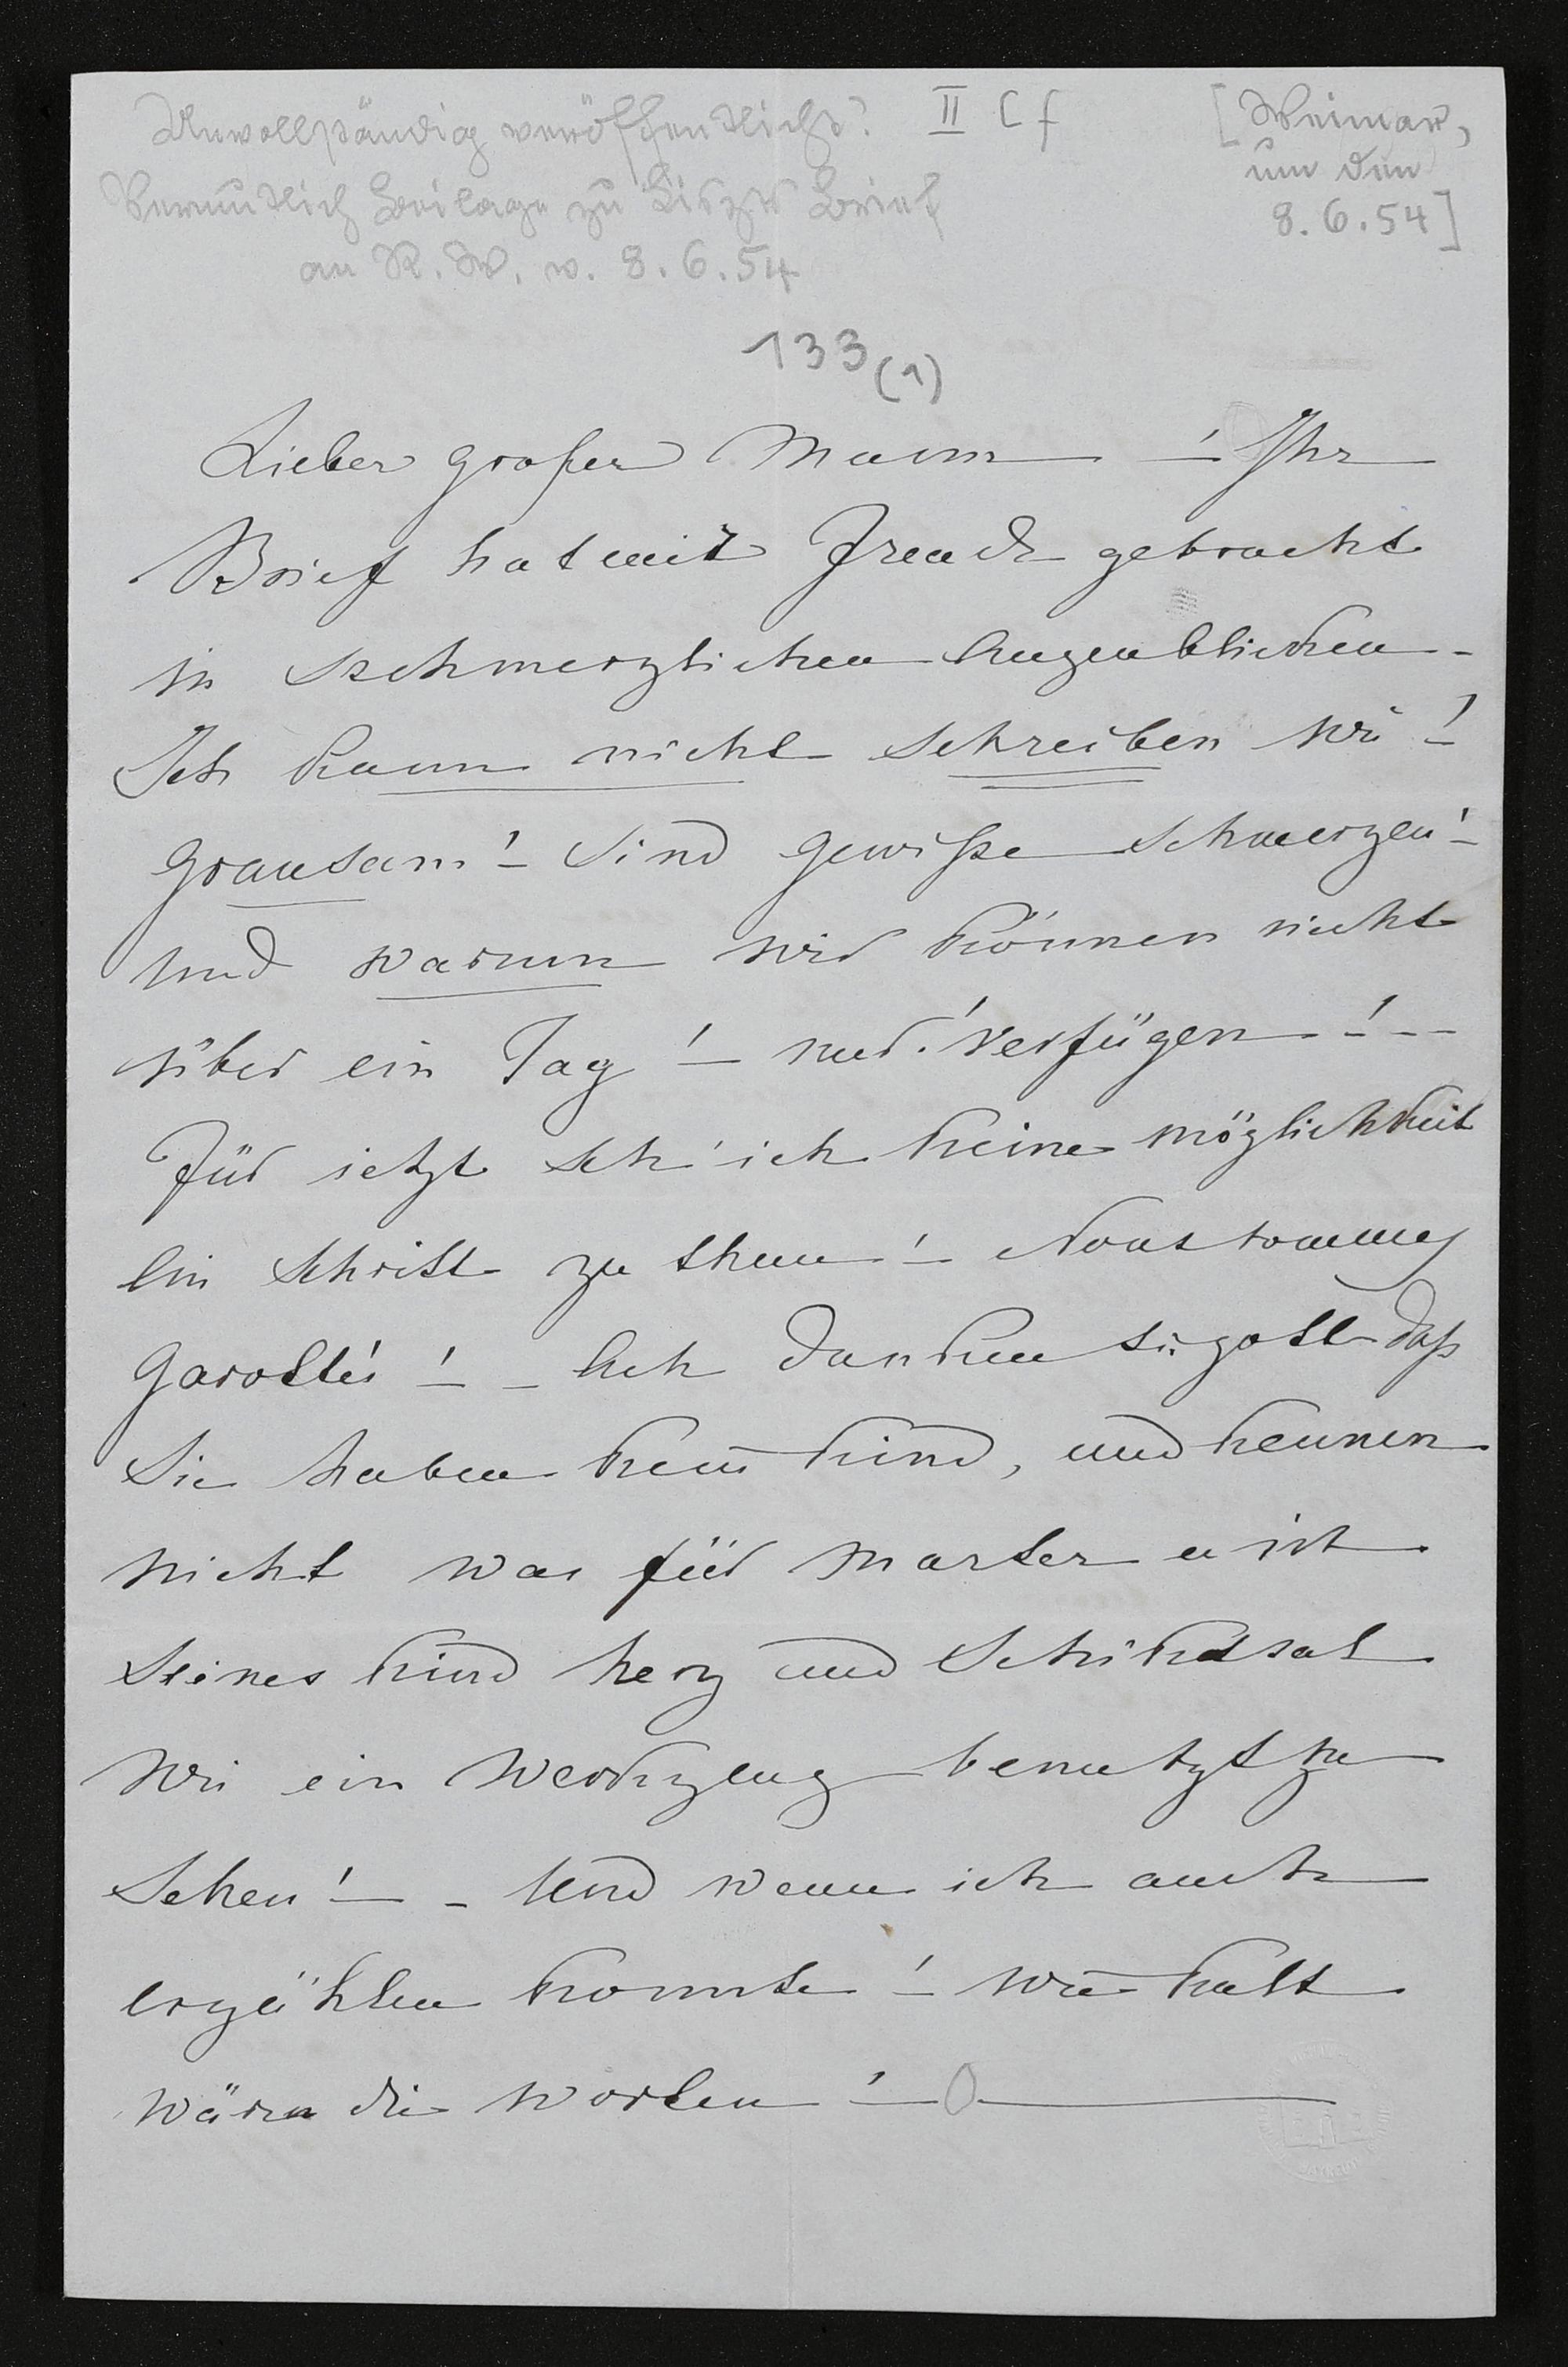 Unvollständig veröffentlicht? II C f
[Weimar,
um den
8.6.54]
Vermutlich Beilage zu Liszts Brief
an R. W. v. 8.6.54
133 (1)
Lieber großer Mann ! Ihr
Brief hat mir Freude gebracht
in schmerzlichen Augenblicken -
Ich kann nicht schreiben wie !
grausam ! sind gewiße schmerzen !
und warum wir können nicht
über ein Tag ! nur ! verfügen ! --
Für jetzt seh' ich keine möglichkeit
ein Schritt zu thun ! Nous sommes
garottés ! - Ach danken sie gott daß
Sie haben kein kind, und kennen
nicht was für marter es ist
seines kind herz und Schicksal
wie ein Werkzeug benutzt zu
Sehen ! - Und wenn ich auch
erzählen konnte ! wie kalt
wären die worten !